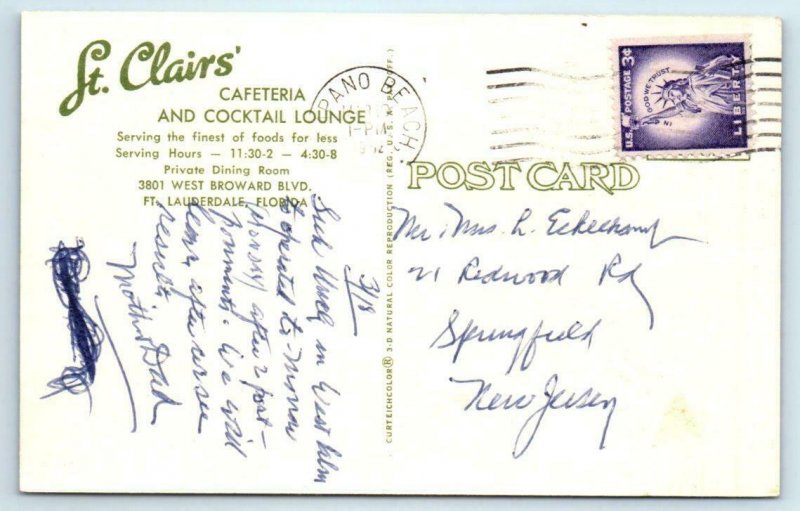 St. Clairs'
CAFETERIA
AND COCKTAIL LOUNGE
Serving the finest of foods for less
Serving Hours — 11:30-2 — 4:30-8
Private Dining Room
3801 WEST BROWARD BLVD.
FT. LAUDERDALE, FLORIDA
PANO BEACH,
PM
CURTEICHCOLOR® 3-D NATURAL COLOR REPRODUCTION (REG. U.S.A. PAT. OFF.)
U.S. POSTAGE 3¢
IN GOD WE TRUST
LIBERTY
POST CARD
3/18
in West Palm
to operated to-morrow
after 2 post-
ponments. We will
hear after we see
results.
Mother & Dad
Mr. & Mrs. R. Eckelkamp
21 Redwood Rd
Springfield
New Jersey